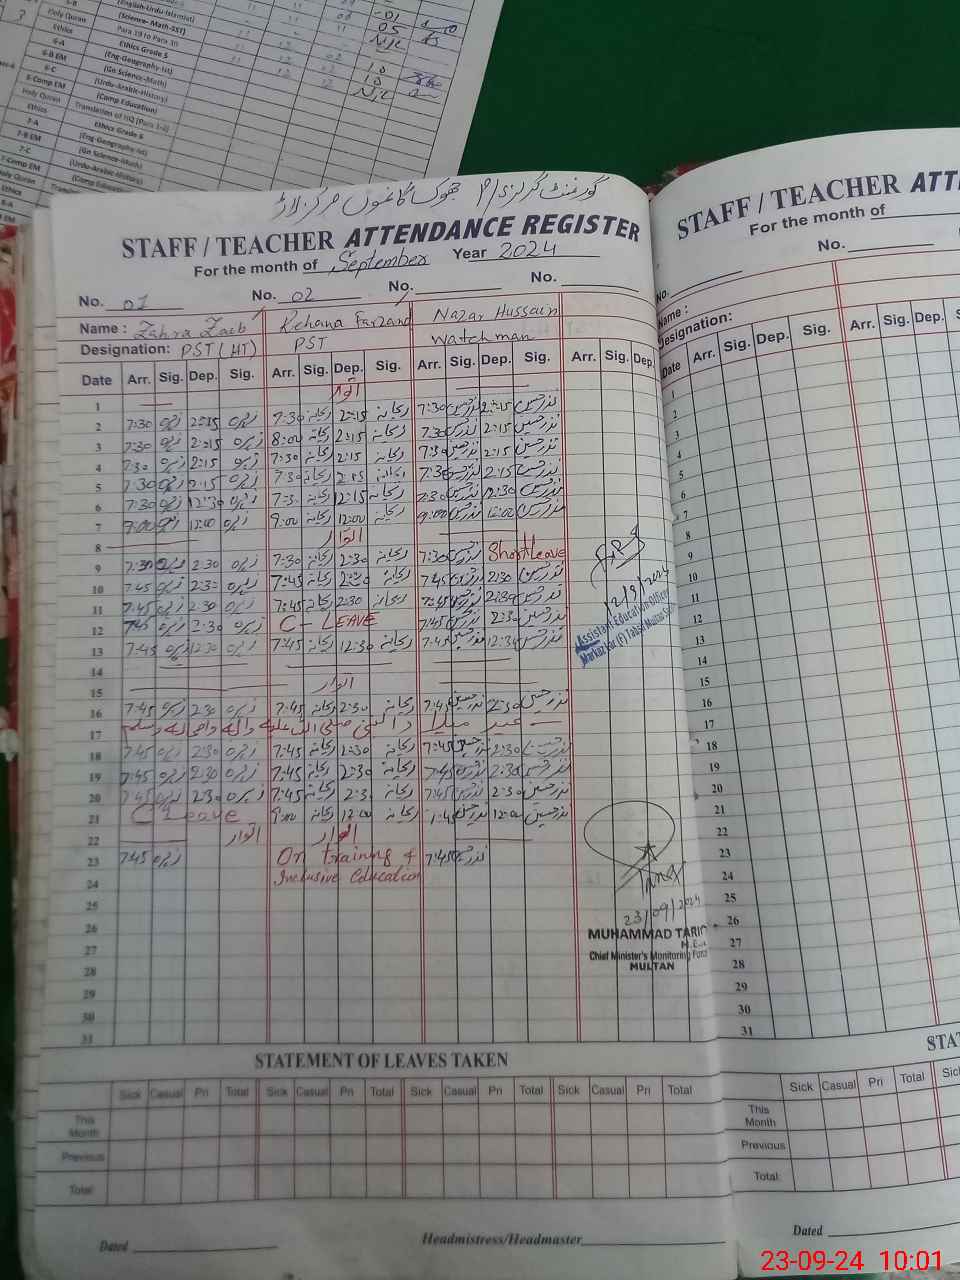 (English-Urdu-Islamiat)
Holy Quran (Science- Math-SST)
Ethics Para 19 to Para 30
6-A Ethics Grade 5
6-B EM (Eng-Geography-Isl)
6-C (Gn Science-Math)
6-Comp EM (Urdu-Arabic-History)
Holy Quran (Comp Education)
Ethics Translation of HQ (Para 1-2)
7-A Ethics Grade 6
7-B EM (Eng-Geography-Isl)
7-C (Gn Science-Math)
7-Comp EM (Urdu-Arabic-History)
Holy Quran (Comp Education)
Ethics
8-A
8-B EM
STAFF / TEACHER ATTENDANCE REGISTER
For the month of September Year 2024
No. 01 No. 02 No. No.
Name : Zahra Zaib Rehana Farzand Nazar Hussain
Designation: PST (HT) PST Watchman
Date Arr. Sig. Dep. Sig. Arr. Sig. Dep. Sig. Arr. Sig. Dep. Sig. Arr. Sig. Dep.
1 اتوار
2 7:30 زہرہ 2:15 زہرہ 7:30 ریحانہ 2:15 ریحانہ 7:30 نذرحسین 2:15 نذرحسین
3 7:30 زہرہ 2:15 زہرہ 8:00 ریحانہ 2:15 ریحانہ 7:30 نذرحسین 2:15 نذرحسین
4 7:30 زہرہ 2:15 زہرہ 7:30 ریحانہ 2:15 ریحانہ 7:30 نذرحسین 2:15 نذرحسین
5 7:30 زہرہ 2:15 زہرہ 7:30 ریحانہ 2:15 ریحانہ 7:30 نذرحسین 2:15 نذرحسین
6 7:30 زہرہ 12:30 زہرہ 7:30 ریحانہ 12:15 ریحانہ 7:30 نذرحسین 12:30 نذرحسین
7 9:00 زہرہ 12:00 زہرہ 9:00 ریحانہ 12:00 ریحانہ 9:00 نذرحسین 12:00 نذرحسین
8 اتوار
9 7:30 زہرہ 2:30 زہرہ 7:30 ریحانہ 2:30 ریحانہ 7:30 نذرحسین Short leave
10 7:45 زہرہ 2:30 زہرہ 7:45 ریحانہ 2:30 ریحانہ 7:45 نذرحسین 2:30 نذرحسین
11 7:45 زہرہ 2:30 زہرہ 7:45 ریحانہ 2:30 ریحانہ 7:45 نذرحسین 2:30 نذرحسین
12 7:45 زہرہ 2:30 زہرہ C- LEAVE 7:45 نذرحسین 2:30 نذرحسین
13 7:45 زہرہ 12:30 زہرہ 7:45 ریحانہ 12:30 ریحانہ 7:45 نذرحسین 12:30 نذرحسین
14
15 اتوار
16 7:45 زہرہ 2:30 زہرہ 7:45 ریحانہ 2:30 ریحانہ 7:45 نذرحسین 2:30 نذرحسین
17 عید میلاد النبی صلی اللہ علیہ وآلہ واصحابہ وسلم
18 7:45 زہرہ 2:30 زہرہ 7:45 ریحانہ 2:30 ریحانہ 7:45 نذرحسین 2:30 نذرحسین
19 7:45 زہرہ 2:30 زہرہ 7:45 ریحانہ 2:30 ریحانہ 7:45 نذرحسین 2:30 نذرحسین
20 7:45 زہرہ 2:30 زہرہ 7:45 ریحانہ 2:30 ریحانہ 7:45 نذرحسین 2:30 نذرحسین
21 C Leave 9:00 ریحانہ 12:00 ریحانہ نذرحسین 12:00 نذرحسین
22 اتوار اتوار
23 7:45 زہرہ On training of 7:45 نذرحسین
24 Inclusive Education
25
26
27
28
29
30
31
12/9/2024
Assistant Education Officer
23/09/2024
MUHAMMAD TARIQ
Chief Minister's Monitoring Force
MULTAN
STATEMENT OF LEAVES TAKEN
Sick Casual Pri Total Sick Casual Pri Total Sick Casual Pri Total Sick Casual Pri Total
This Month
Previous
Total:
Dated Headmistress/Headmaster
STAFF / TEACHER ATT
For the month of
No.
No.
Name :
Designation:
Date Arr. Sig. Dep. Sig. Arr. Sig. Dep.
1
2
3
4
5
6
7
8
9
10
11
12
13
14
15
16
17
18
19
20
21
22
23
24
25
26
27
28
29
30
31
STAT
Sick Casual Pri Total Sick
This Month
Previous
Total:
Dated
23-09-24 10:01